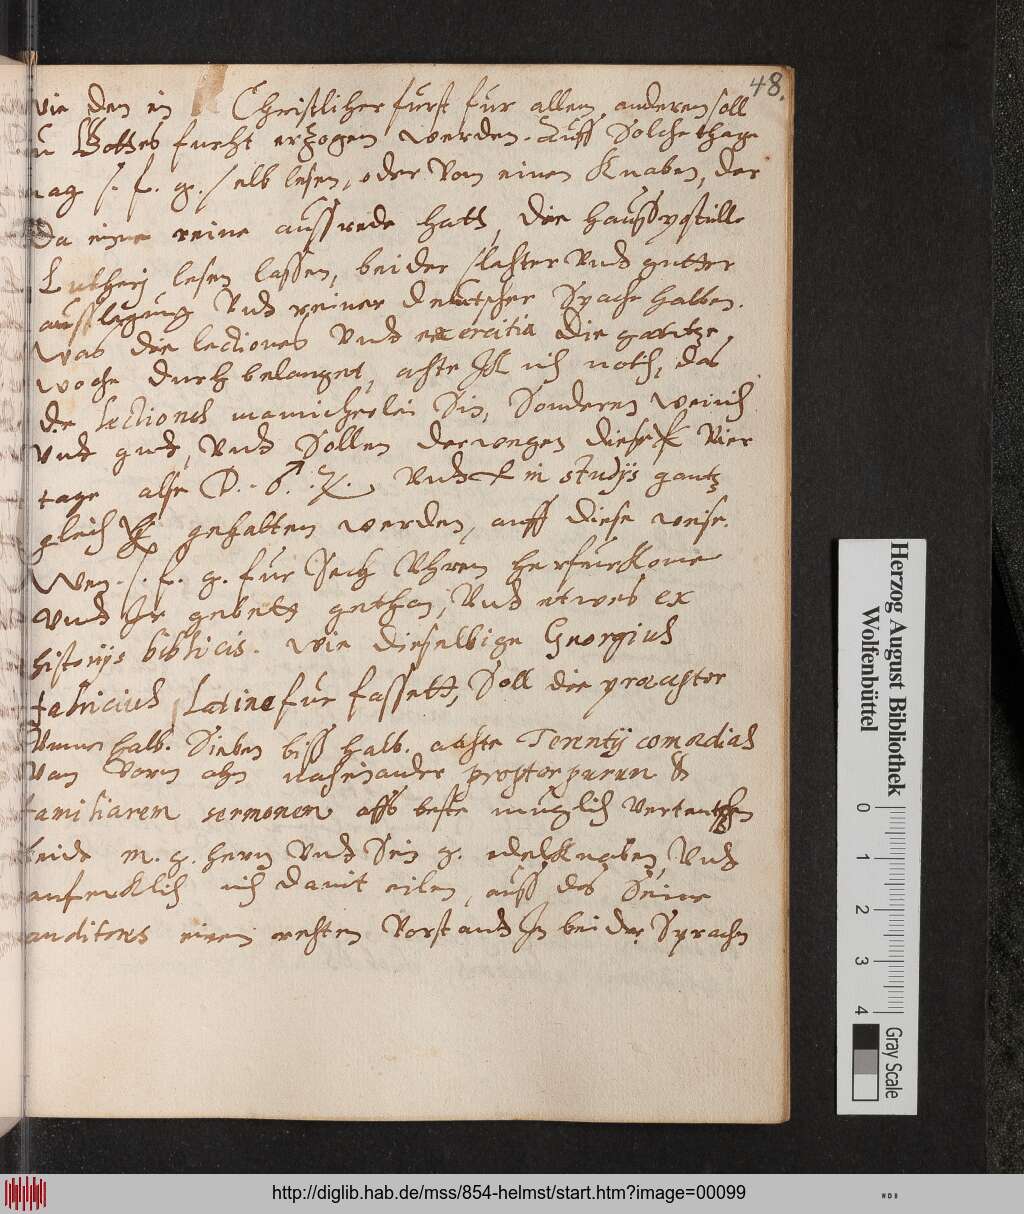 48.
wie den ein Christlicher furst fur allen anderen soll
zu Gottes furcht erzogen werden. Auff solche thage
mag s. f. g. selb lesen, oder von einen Knaben, der
da eine reine aussrede hatt, die hausspostill
Lutherj lesen lassen, beider slechter vnd gutter
ausslegung vnd reiner deutscher Sprache halben.
Was die lectiones vnd exercitia die gantze
woche durch belanget, achte Ich nicht noth, das
die lectiones mannicherlei sin, sonderen weinich
vnd gud, vnd sollen derwegen diese vier
tage alse ☽. ♂. ♃. vnd in studijs gantz
gleich gehalten werden, auff diese weise.
Wen. s. f. g. fur sech vhren herfurkome
vnd Ir gebett gethan, vnd etwes ex
historijs biblicis. wie dieselbige Georgius
fabricius Latine fur fassett, soll die praeceptor
vmme halb. sieben biss halb. achte Terentij comoedias
van vorn ahn nacheinander propter purum &
familiarem sermonem affs beste muglich
beide m. g. hern vnd sein g. edelknaben, vnd
anfencklich nich damit eilen, auff das seine
auditores einen rechten vorstand In beider Sprachen
Herzog August Bibliothek
Wolfenbüttel
0 1 2 3 4
Gray Scale
http://diglib.hab.de/mss/854-helmst/start.htm?image=00099